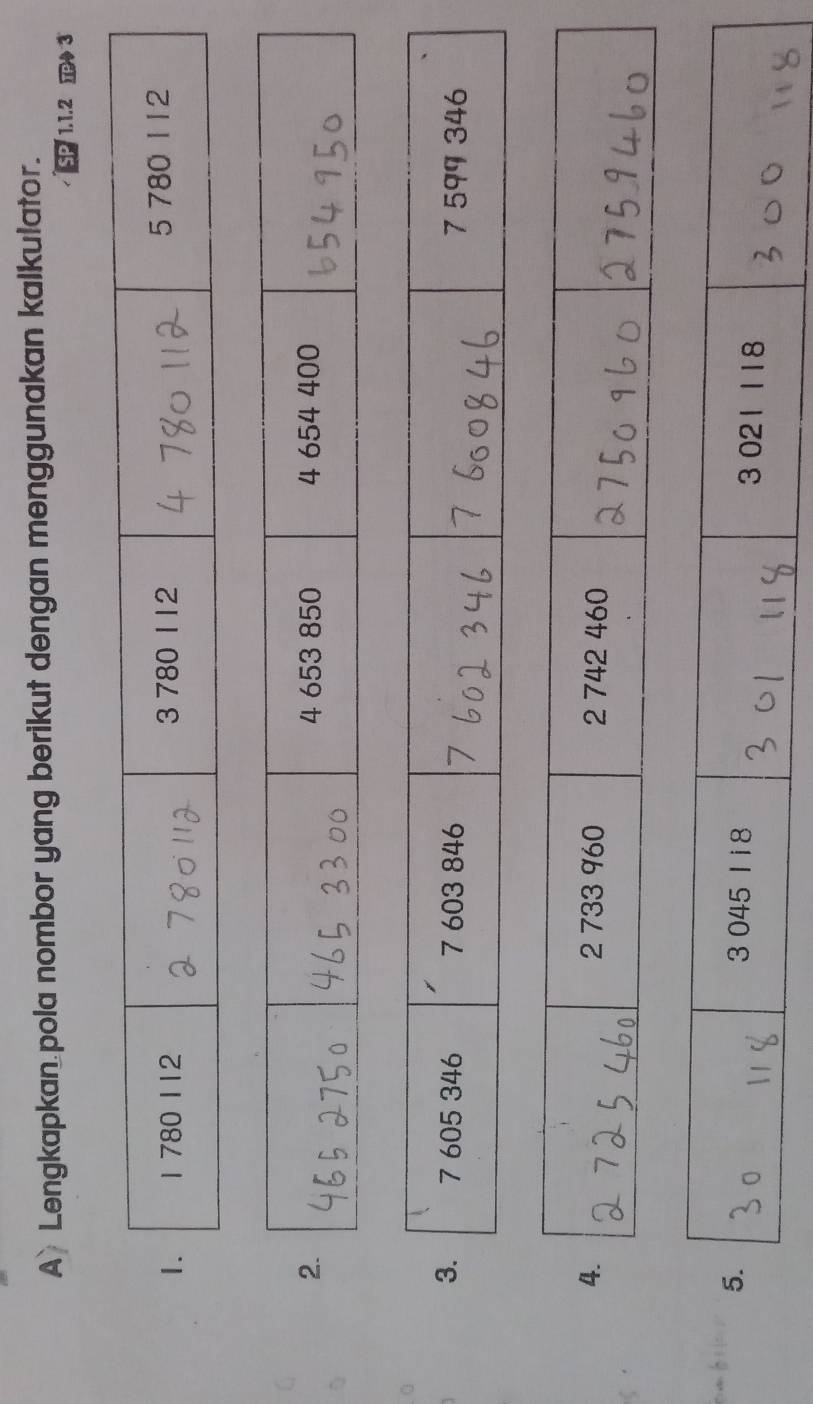 A) Lengkapkan pola nombor yang berikut dengan menggunakan kalkulator.
SP 1.1.2 TP 3
1. 1 780 112 2 780 112 3 780 112 4 780 112 5 780 112
2. 465 2750 465 3300 4 653 850 4 654 400 654950
3. 7 605 346 7 603 846 7 602 346 7 600846 7 599 346
4. 2 725 460 2 733 960 2 742 460 2750 960 2759460
5. 30 118 3 045 118 301 118 3 021 118 300 118